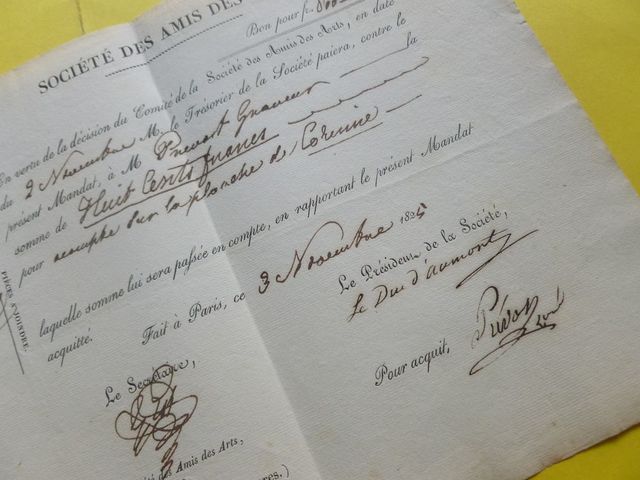 SOCIÉTÉ DES AMIS DES
Bon pour fr.
En vertu de la décision du Comité de la Société des Amis des Arts, en date
du 2 Novembre M. le Trésorier de la Société paiera, contre le
présent Mandat, à M. Prevost Graveur la
somme de Huit Cents francs
pour acompte sur la planche de Corinne
laquelle somme lui sera passée en compte, en rapportant le présent Mandat
acquitté.
PIÈCES A JOINDRE.
Fait à Paris, ce 3 Novembre 1825
Le Président de la Société,
Le Duc d'aumont
Le Secrétaire,
Pour acquit,
té des Amis des Arts,
res.)